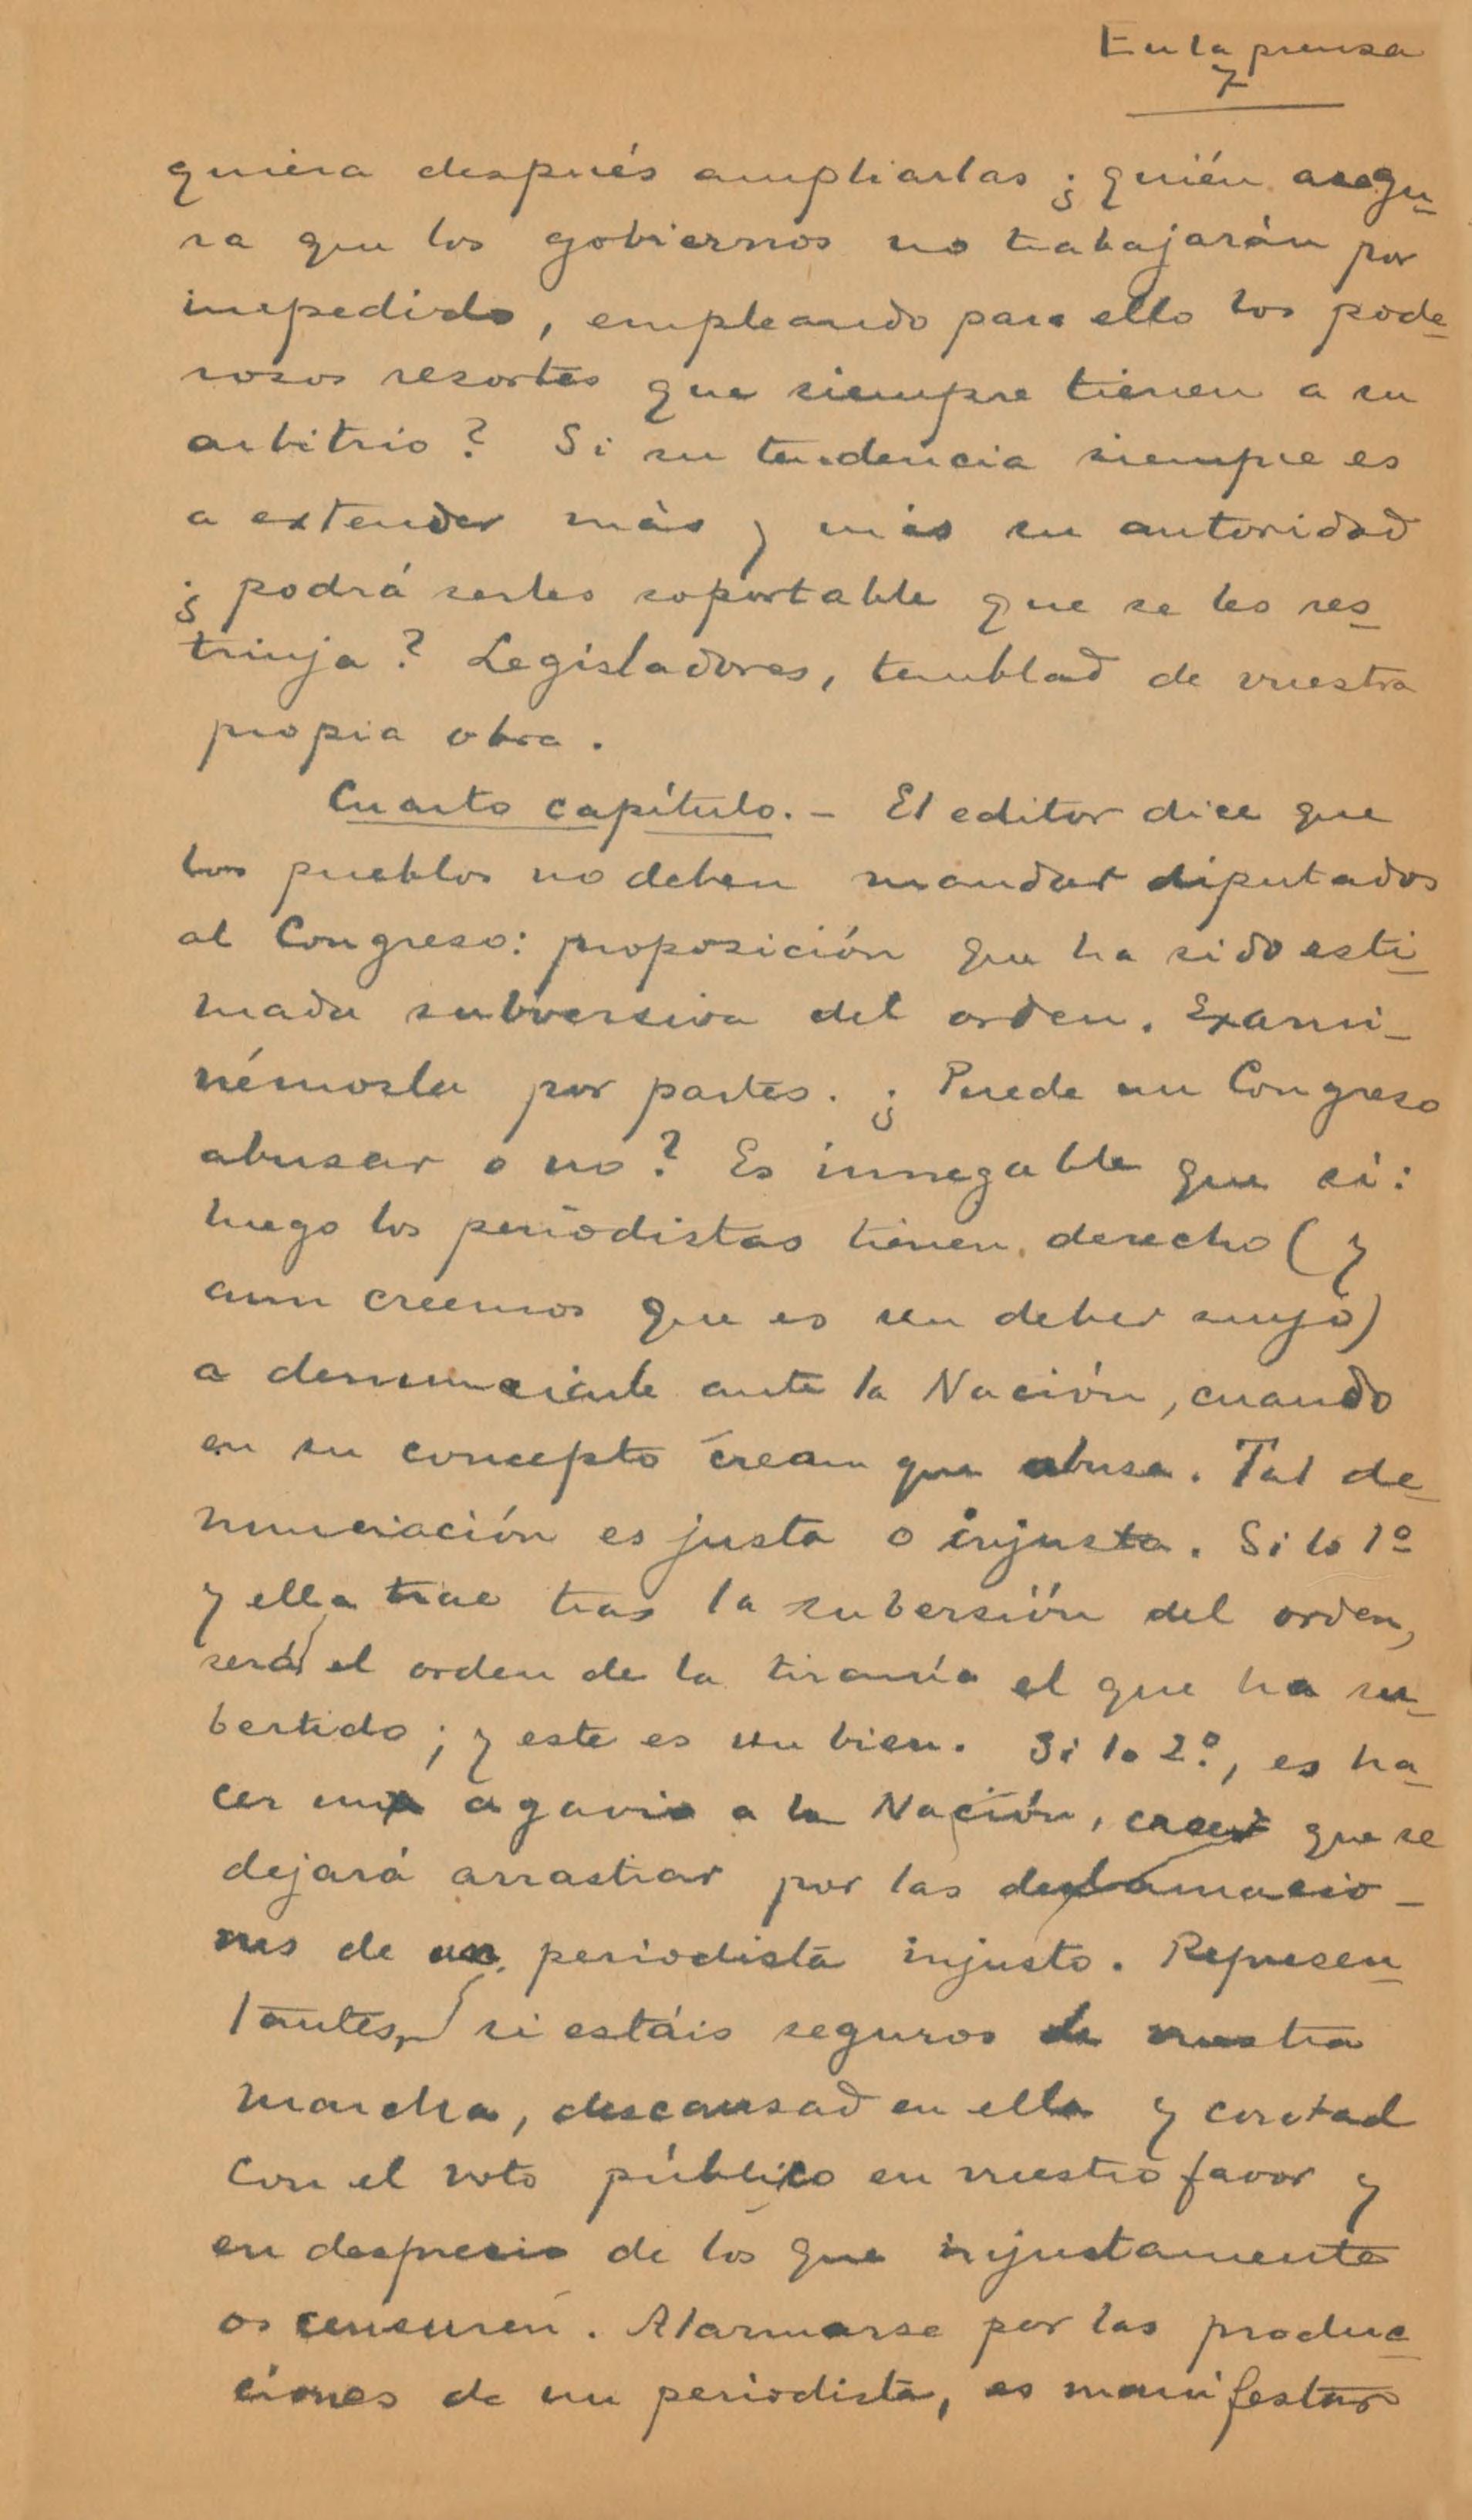 En la prensa
7
quiera después ampliarlas ¿quién asegu-
ra que los gobiernos no trabajarán por
impedirlo, empleando para ello los pode-
rosos resortes que siempre tienen a su
arbitrio? Si su tendencia siempre es
a extender más y más su autoridad
¿podrá serles soportable que se les res-
trinja? Legisladores, temblad de vuestra
propia obra.
Cuarto capítulo.- El editor dice que
los pueblos no deben mandar diputados
al Congreso: proposición que ha sido esti-
mada subversiva del orden. Exami-
némosla por partes. ¿Puede un Congreso
abusar o no? Es innegable que sí:
luego los periodistas tienen derecho (y
aun creemos que es un deber suyo)
a denunciarle ante la Nación, cuando
en su concepto crean que abusa. Tal de-
nunciación es justa o injusta. Si lo 1º
y ella trae tras la subersión del orden,
será el orden de la tiranía el que ha su-
bertido; y este es un bien. Si lo 2º, es ha-
cer un agavio a la Nación, creer que se
dejará arrastrar por las declamacio-
nes de un periodista injusto. Represen-
tantes, si estáis seguros de vuestra
marcha, descansad en ella y contad
con el voto público en vuestro favor y
en desprecio de los que injustamente
os censuren. Alarmarse por las produc-
ciones de un periodista, es manifestar